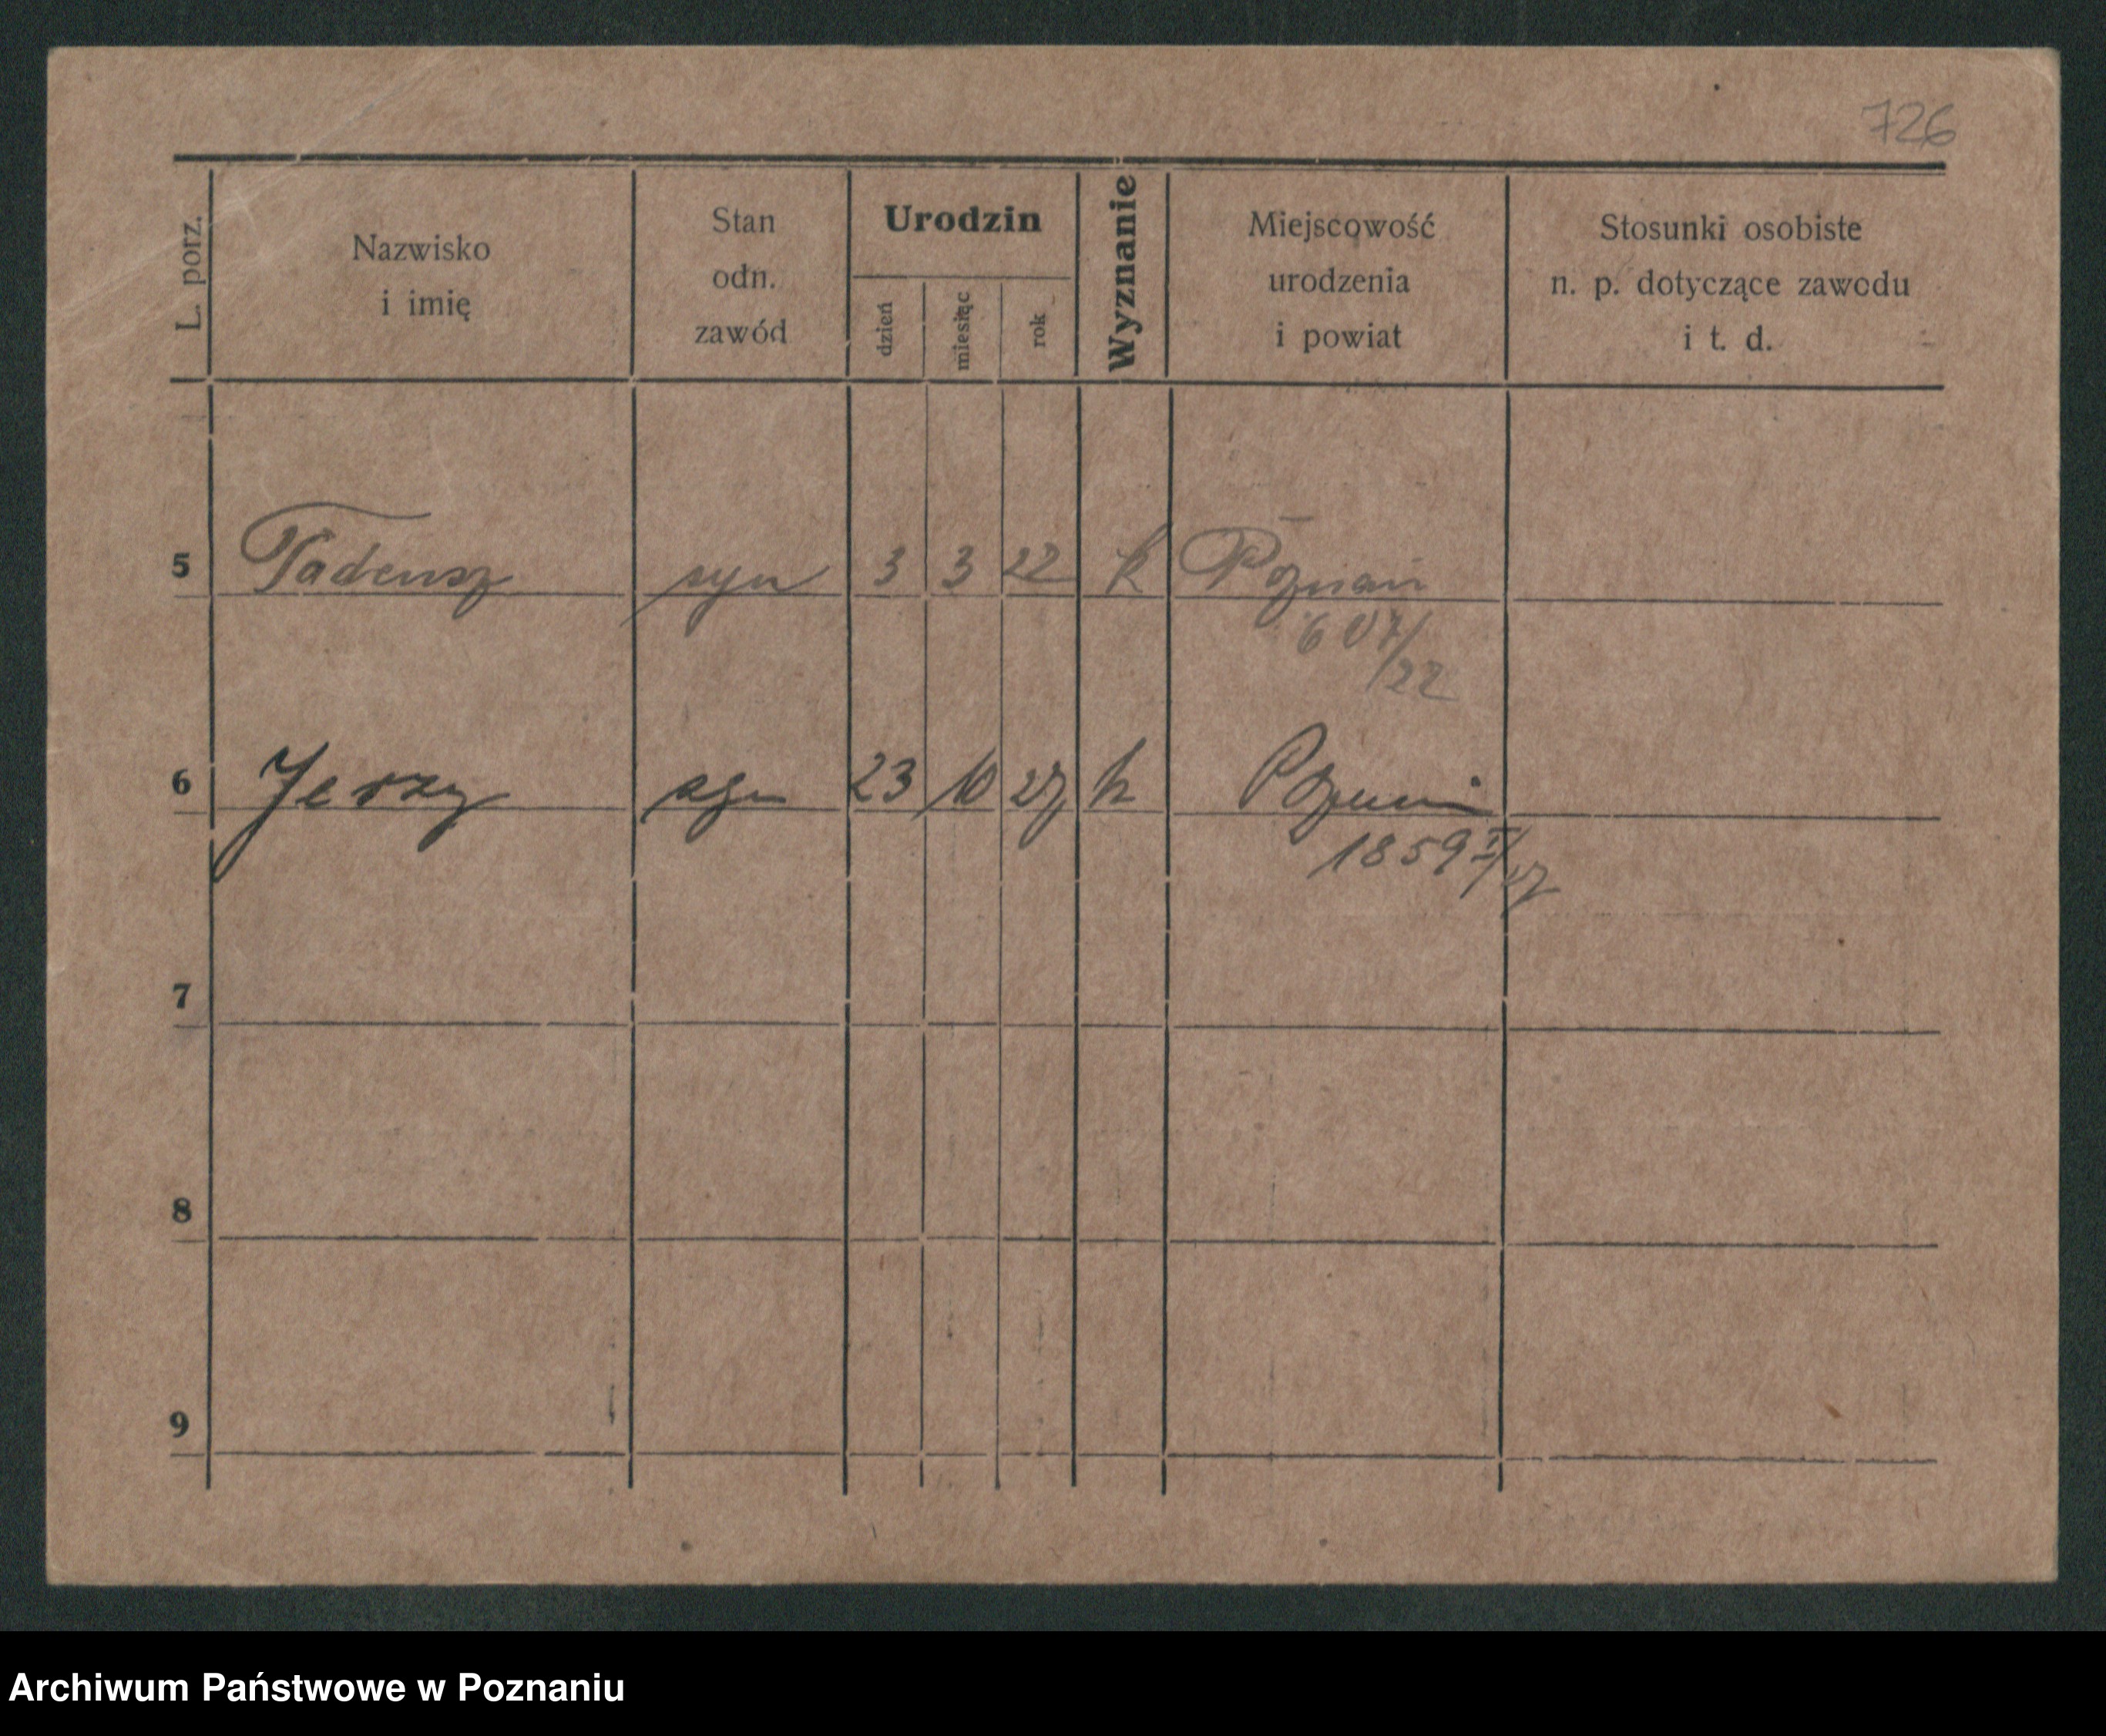 726
L. porz.
Nazwisko
i imię
Stan
odn.
zawód
Urodzin
dzień
miesiąc
rok
Wyznanie
Miejscowość
urodzenia
i powiat
Stosunki osobiste
n. p. dotyczące zawodu
i t. d.
5 Tadeusz syn 3 3 22 k Poznań
607/22
6 Jerzy syn 23 10 27 k Poznań
1859 I/27
7
8
9
Archiwum Państwowe w Poznaniu